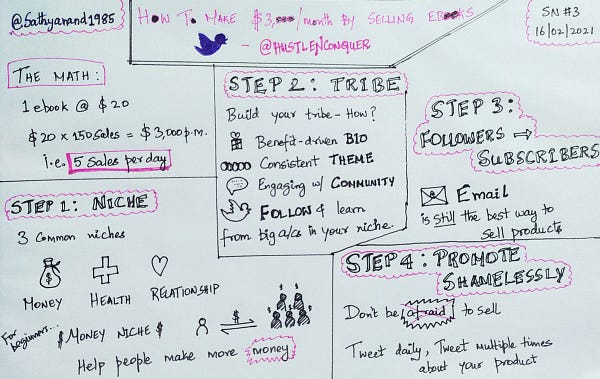 @Sathyanand1985
HOW TO MAKE $3,000/month BY SELLING EBOOKS
- @HUSTLENCONQUER
SN #3
16/02/2021
THE MATH:
1 ebook @ $20
$20 x 150 sales = $3,000 p.m.
i.e. 5 sales per day
STEP 1: NICHE
3 Common niches
MONEY
HEALTH
RELATIONSHIP
For beginners...
$ MONEY NICHE $
$
Help people make more money
STEP 2: TRIBE
Build your tribe - How?
Benefit-driven BIO
Consistent THEME
Engaging w/ COMMUNITY
FOLLOW & learn
from big a/cs in your niche.
STEP 3:
FOLLOWERS ⇒
SUBSCRIBERS
Email
is still the best way to
sell products
STEP 4: PROMOTE
SHAMELESSLY
Don't be afraid to sell
Tweet daily, Tweet multiple times
about your product